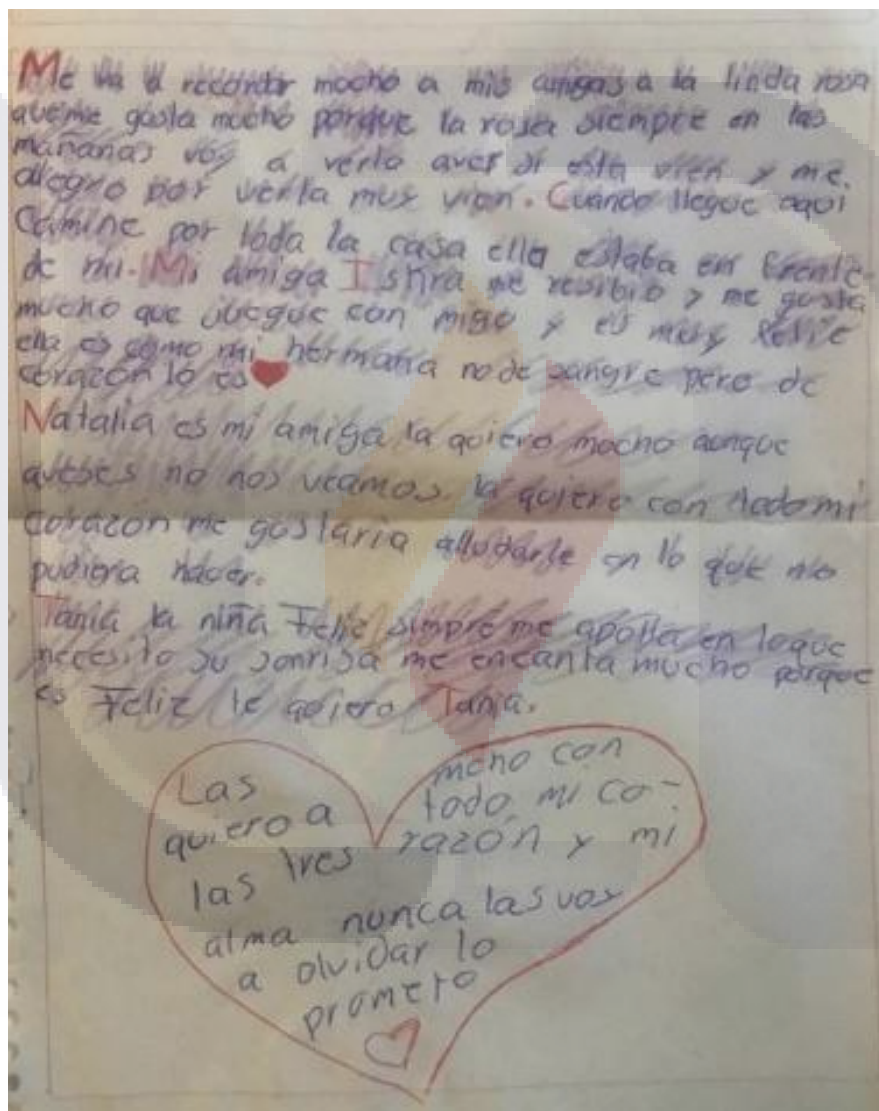 Me va a recordar mocho a mis amigas a la linda rosa
que me gusta mucho porque la rosa siempre en las
mañanas voy a verla aver si esta vien y me.
alegro por verla muy vien. Cuando llegue aqui
Camine por toda la casa ella estaba en frente
de mi. Mi amiga me resibio y me gusta
mucho que juegue con migo y es muy
ella es como mi hermana no de sangre pero de
corazón lo es
Natalia es mi amiga la quiero mocho aunque
aveses no nos veamos. la quiero con todo mi
corazon me gustaria alludarle en lo que no
pudiera hacer.
Tania la niña Feliz simpre me apolla en loque
necesito su sonrisa me encanta mucho porque
es Feliz le quiero Tania.
Las
quiero a
las tres
mcho con
todo mi co-
razón y mi
alma nunca las voy
a olvidar lo
prometo